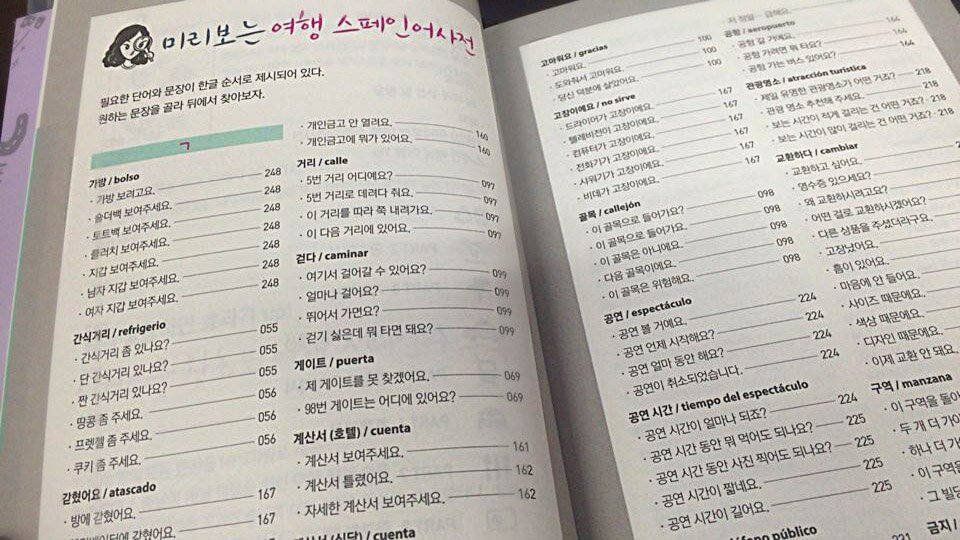 미리보는 여행 스페인어사전
필요한 단어와 문장이 한글 순서로 제시되어 있다.
원하는 문장을 골라 뒤에서 찾아보자.
ㄱ
가방 / bolso
· 가방 보려고요. 248
· 숄더백 보여주세요. 248
· 토트백 보여주세요. 248
· 클러치 보여주세요. 248
· 지갑 보여주세요. 248
· 남자 지갑 보여주세요. 248
· 여자 지갑 보여주세요. 248
간식거리 / refrigerio
· 간식거리 좀 있나요? 055
· 단 간식거리 있나요? 055
· 짠 간식거리 있나요? 055
· 땅콩 좀 주세요. 056
· 프렛젤 좀 주세요. 056
· 쿠키 좀 주세요. 056
갇혔어요 / atascado
· 방에 갇혔어요. 167
갇혔어요. 167
· 개인금고 안 열려요. 160
· 개인금고에 뭐가 있어요. 160
거리 / calle
· 5번 거리 어디예요? 097
· 5번 거리로 데려다 줘요. 097
· 이 거리를 따라 쭉 내려가요. 097
· 이 다음 거리에 있어요. 097
걷다 / caminar
· 여기서 걸어갈 수 있어요? 099
· 얼마나 걸어요? 099
· 뛰어서 가면요? 099
· 걷기 싫은데 뭐 타면 돼요? 099
게이트 / puerta
· 제 게이트를 못 찾겠어요. 069
· 98번 게이트는 어디에 있어요? 069
계산서 (호텔) / cuenta
· 계산서 보여주세요. 161
· 계산서 틀렸어요. 162
· 자세한 계산서 보여주세요. 162
계산서 (식당) / cuenta
고마워요 / gracias
· 고마워요. 100
· 도와줘서 고마워요. 100
· 당신 덕분에 살았어요. 100
고장이에요 / no sirve
· 드라이어가 고장이에요. 167
· 텔레비전이 고장이에요. 167
· 컴퓨터가 고장이에요. 167
· 전화기가 고장이에요. 167
· 샤워기가 고장이에요. 167
· 비데가 고장이에요. 167
골목 / callejón
· 이 골목으로 들어가요? 098
· 이 골목으로 들어가요. 098
· 이 골목은 아니에요. 098
· 다음 골목이에요. 098
· 이 골목은 위험해요. 098
공연 / espectáculo
· 공연 볼 거예요. 224
· 공연 언제 시작해요? 224
· 공연 얼마 동안 해요? 224
· 공연이 취소되었습니다. 224
공연 시간 / tiempo del espectáculo
· 공연 시간이 얼마나 되죠? 224
· 공연 시간 동안 뭐 먹어도 되나요? 225
· 공연 시간 동안 사진 찍어도 되나요? 225
· 공연 시간이 짧네요. 225
· 공연 시간이 길어요. 225
público 221
공항 / aeropuerto
· 공항 갈 거예요. 164
· 공항 가려면 뭐 타요? 164
· 공항 가는 버스 있어요? 164
관광명소 / atracción turística
· 제일 유명한 관광명소가 어떤 거죠? 218
· 관광 명소 추천해 주세요. 218
· 보는 시간이 적게 걸리는 건 어떤 거죠? 218
· 보는 시간이 많이 걸리는 건 어떤 거죠? 218
교환하다 / cambiar
· 교환하고 싶어요.
· 영수증 있으세요?
· 왜 교환하시려고요?
· 어떤 걸로 교환하시겠어요?
· 다른 상품을 주셨더라구요.
· 고장났어요.
· 흠이 있어요.
· 마음에 안 들어요.
· 사이즈 때문에요.
· 색상 때문에요.
· 디자인 때문에요.
· 이제 교환 안 돼요.
구역 / manzana
· 이 구역을 돌아
· 두 개 더 가
· 하나 더 가
· 이 구역을
· 그 빌딩
금지 /